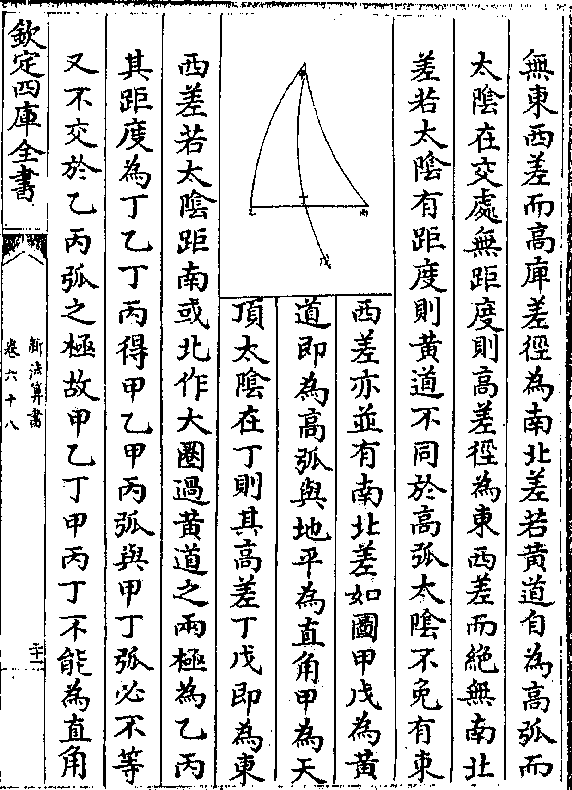 無東西差而高庳差徑為南北差若黄道自為高弧而
太陰在交處無距度則高差徑為東西差而絶無南北
差若太陰有距度則黄道不同於高弧太陰不免有東
西差亦並有南北差如圖甲戊為黄
道即為高弧與地平為直角甲為天
頂太陰在丁則其高差丁戊即為東
甲
乙
丁
丙
戊
西差若太陰距南或北作大圈過黄道之兩極為乙丙
其距度為丁乙丁丙得甲乙甲丙弧與甲丁弧必不等
又不交於乙丙弧之極故甲乙丁甲丙丁不能為直角
欽定四庫全書
新法算書
卷六十八